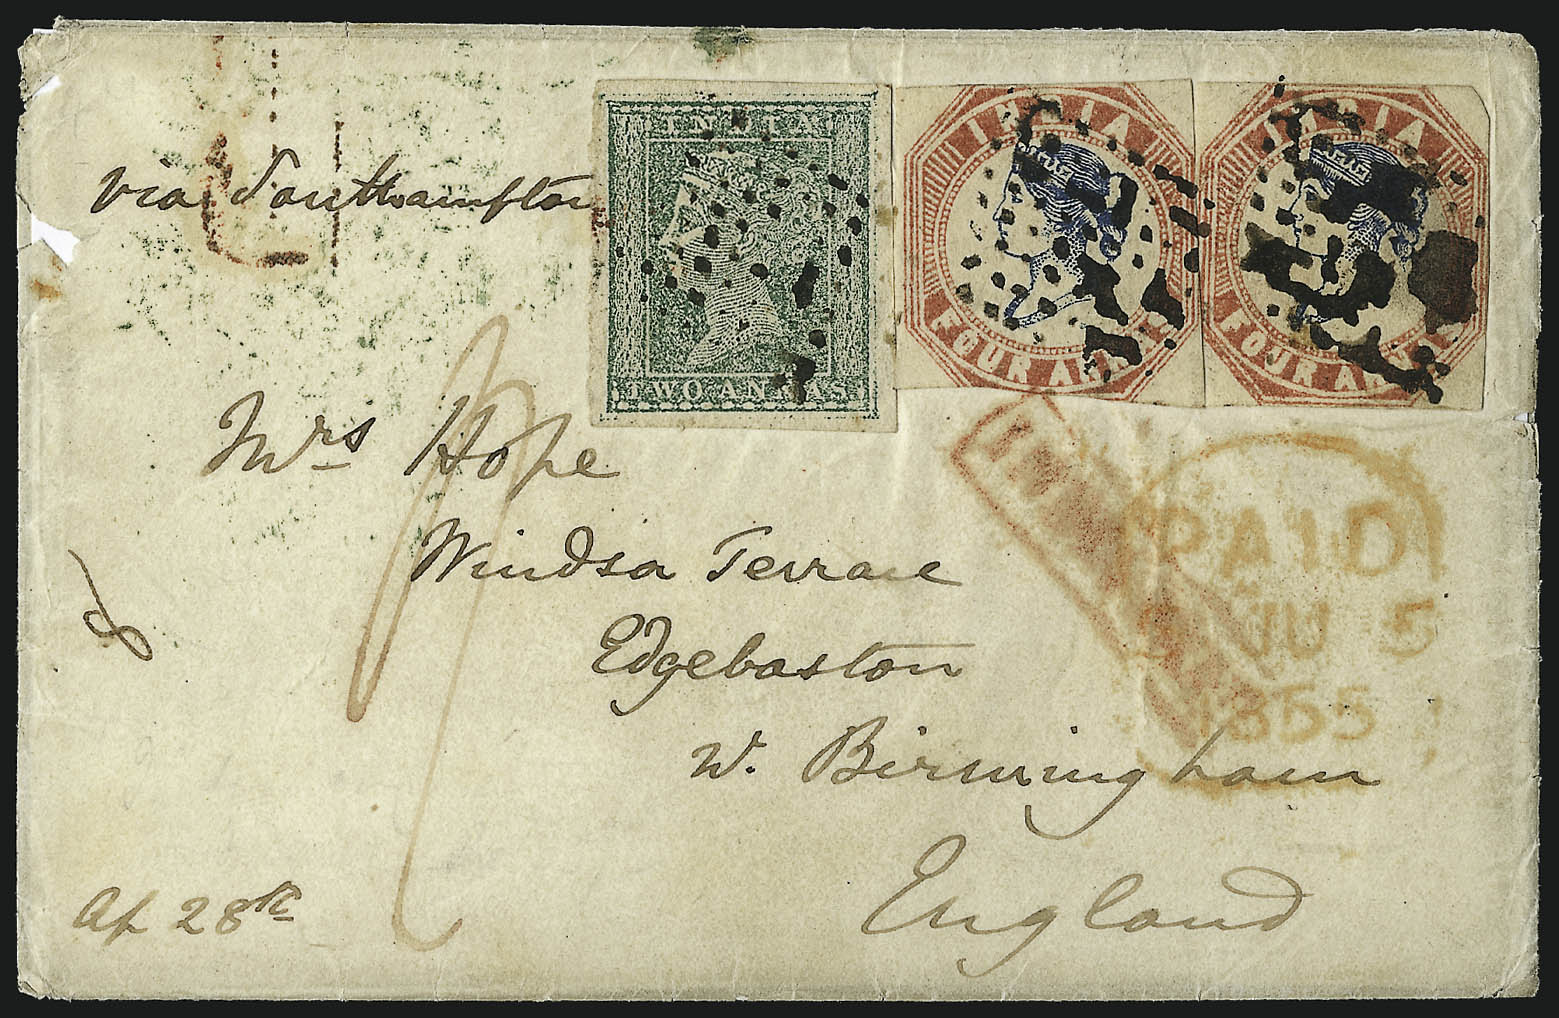 via Southampton
INDIA
TWO ANNAS
INDIA
FOUR ANNAS
INDIA
FOUR ANNAS
Mrs Hope
Windsor Terrace
Edgebaston
Nr. Birmingham
England
Ap 28th
PAID
JU 5
1855